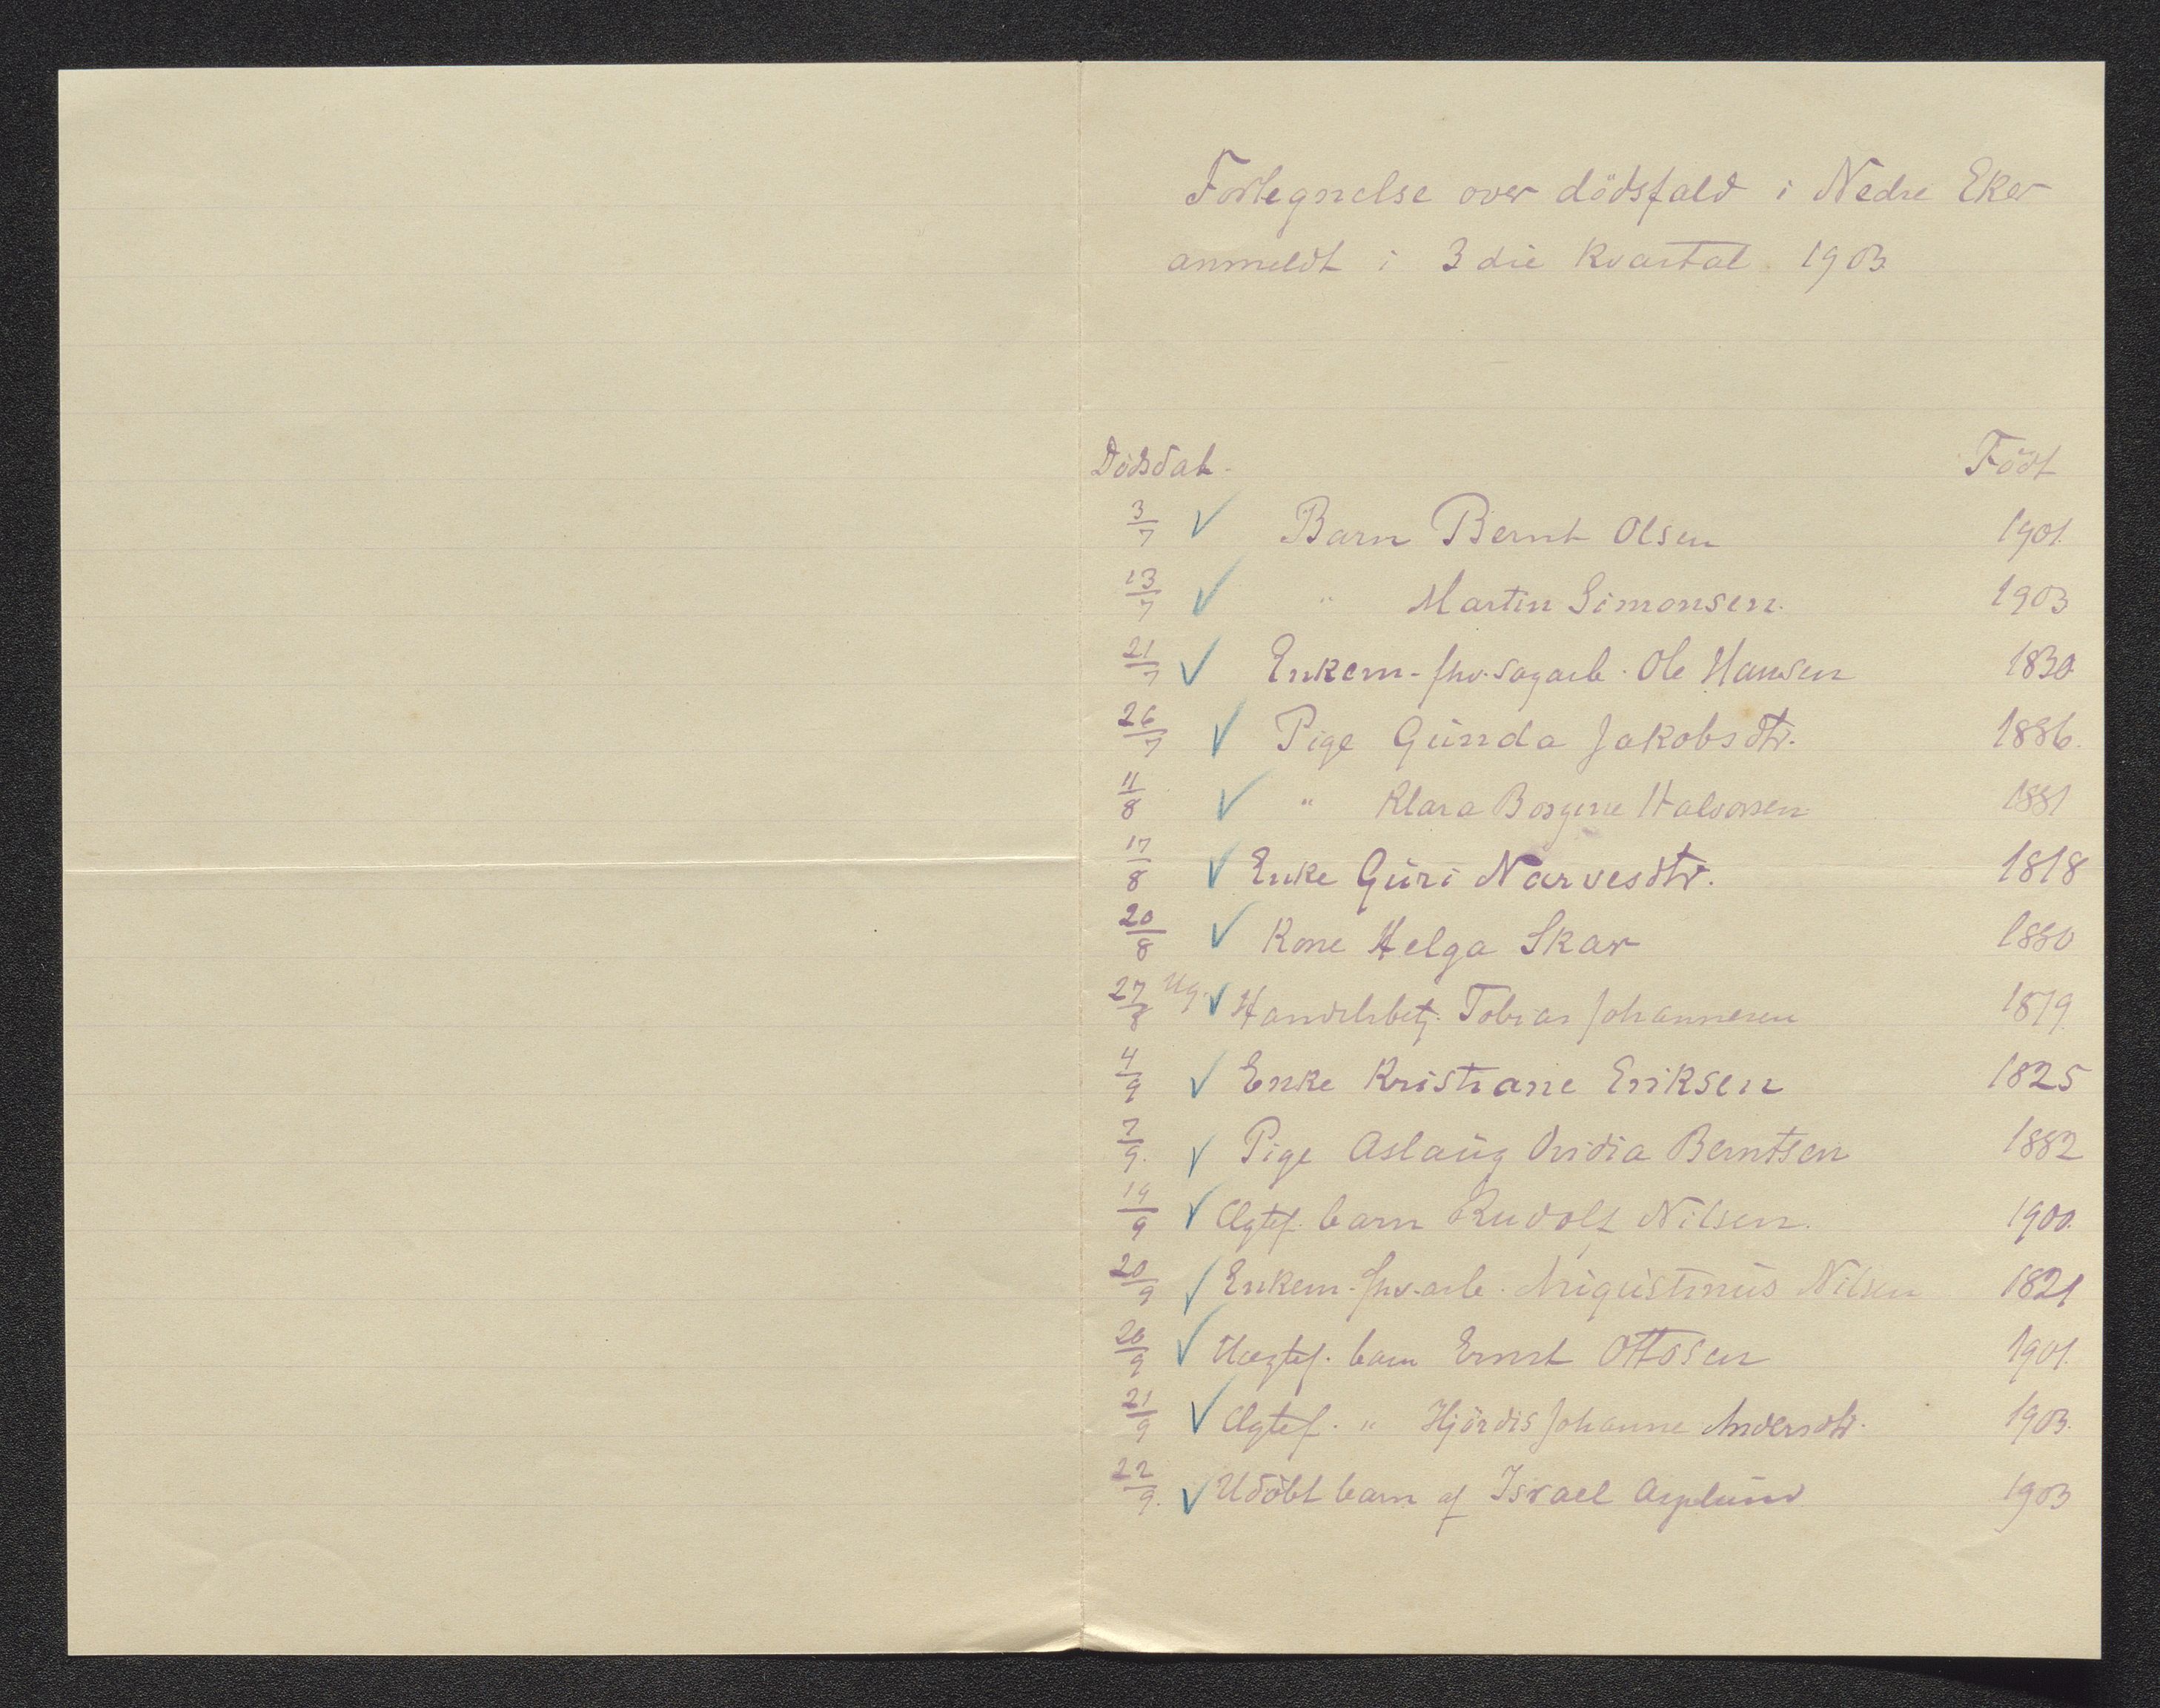 Fortegnelse over dödsfald i Nedre Eker
anmeldt i 3die kvartal 1903
Dødsdat. Född
3/7 ✓ Barn Bernt Olsen 1901.
13/7 ✓ " Martin Simonsen. 1903
21/7 ✓ Enkem. fhv. sagarb. Ole Hansen 1830
26/7 ✓ Pige Gunda Jakobsdtr. 1886.
11/8 ✓ " Klara Borgine Halvorsen 1881
17/8 ✓ Enke Guri Narvesdtr. 1818
20/8 ✓ Kone Helga Skar 1880
27/8 Ug. ✓ Handelsbetj. Tobias Johannesen 1879
4/9 ✓ Enke Kristiane Eriksen 1825
7/9. ✓ Pige Aslaug Ovidia Berntsen 1882
19/9 ✓ Ægtef. barn Rudolf Nilsen. 1900.
20/9 ✓ Enkem. fhv. arb. Augustinus Nilsen 1821
20/9 ✓ Uægtef. barn Ernst Ottosen 1901.
21/9 ✓ Ægtef. " Hjördis Johanne Andersdtr. 1903.
22/9. ✓ Udöbt barn af Israel Asplund 1903